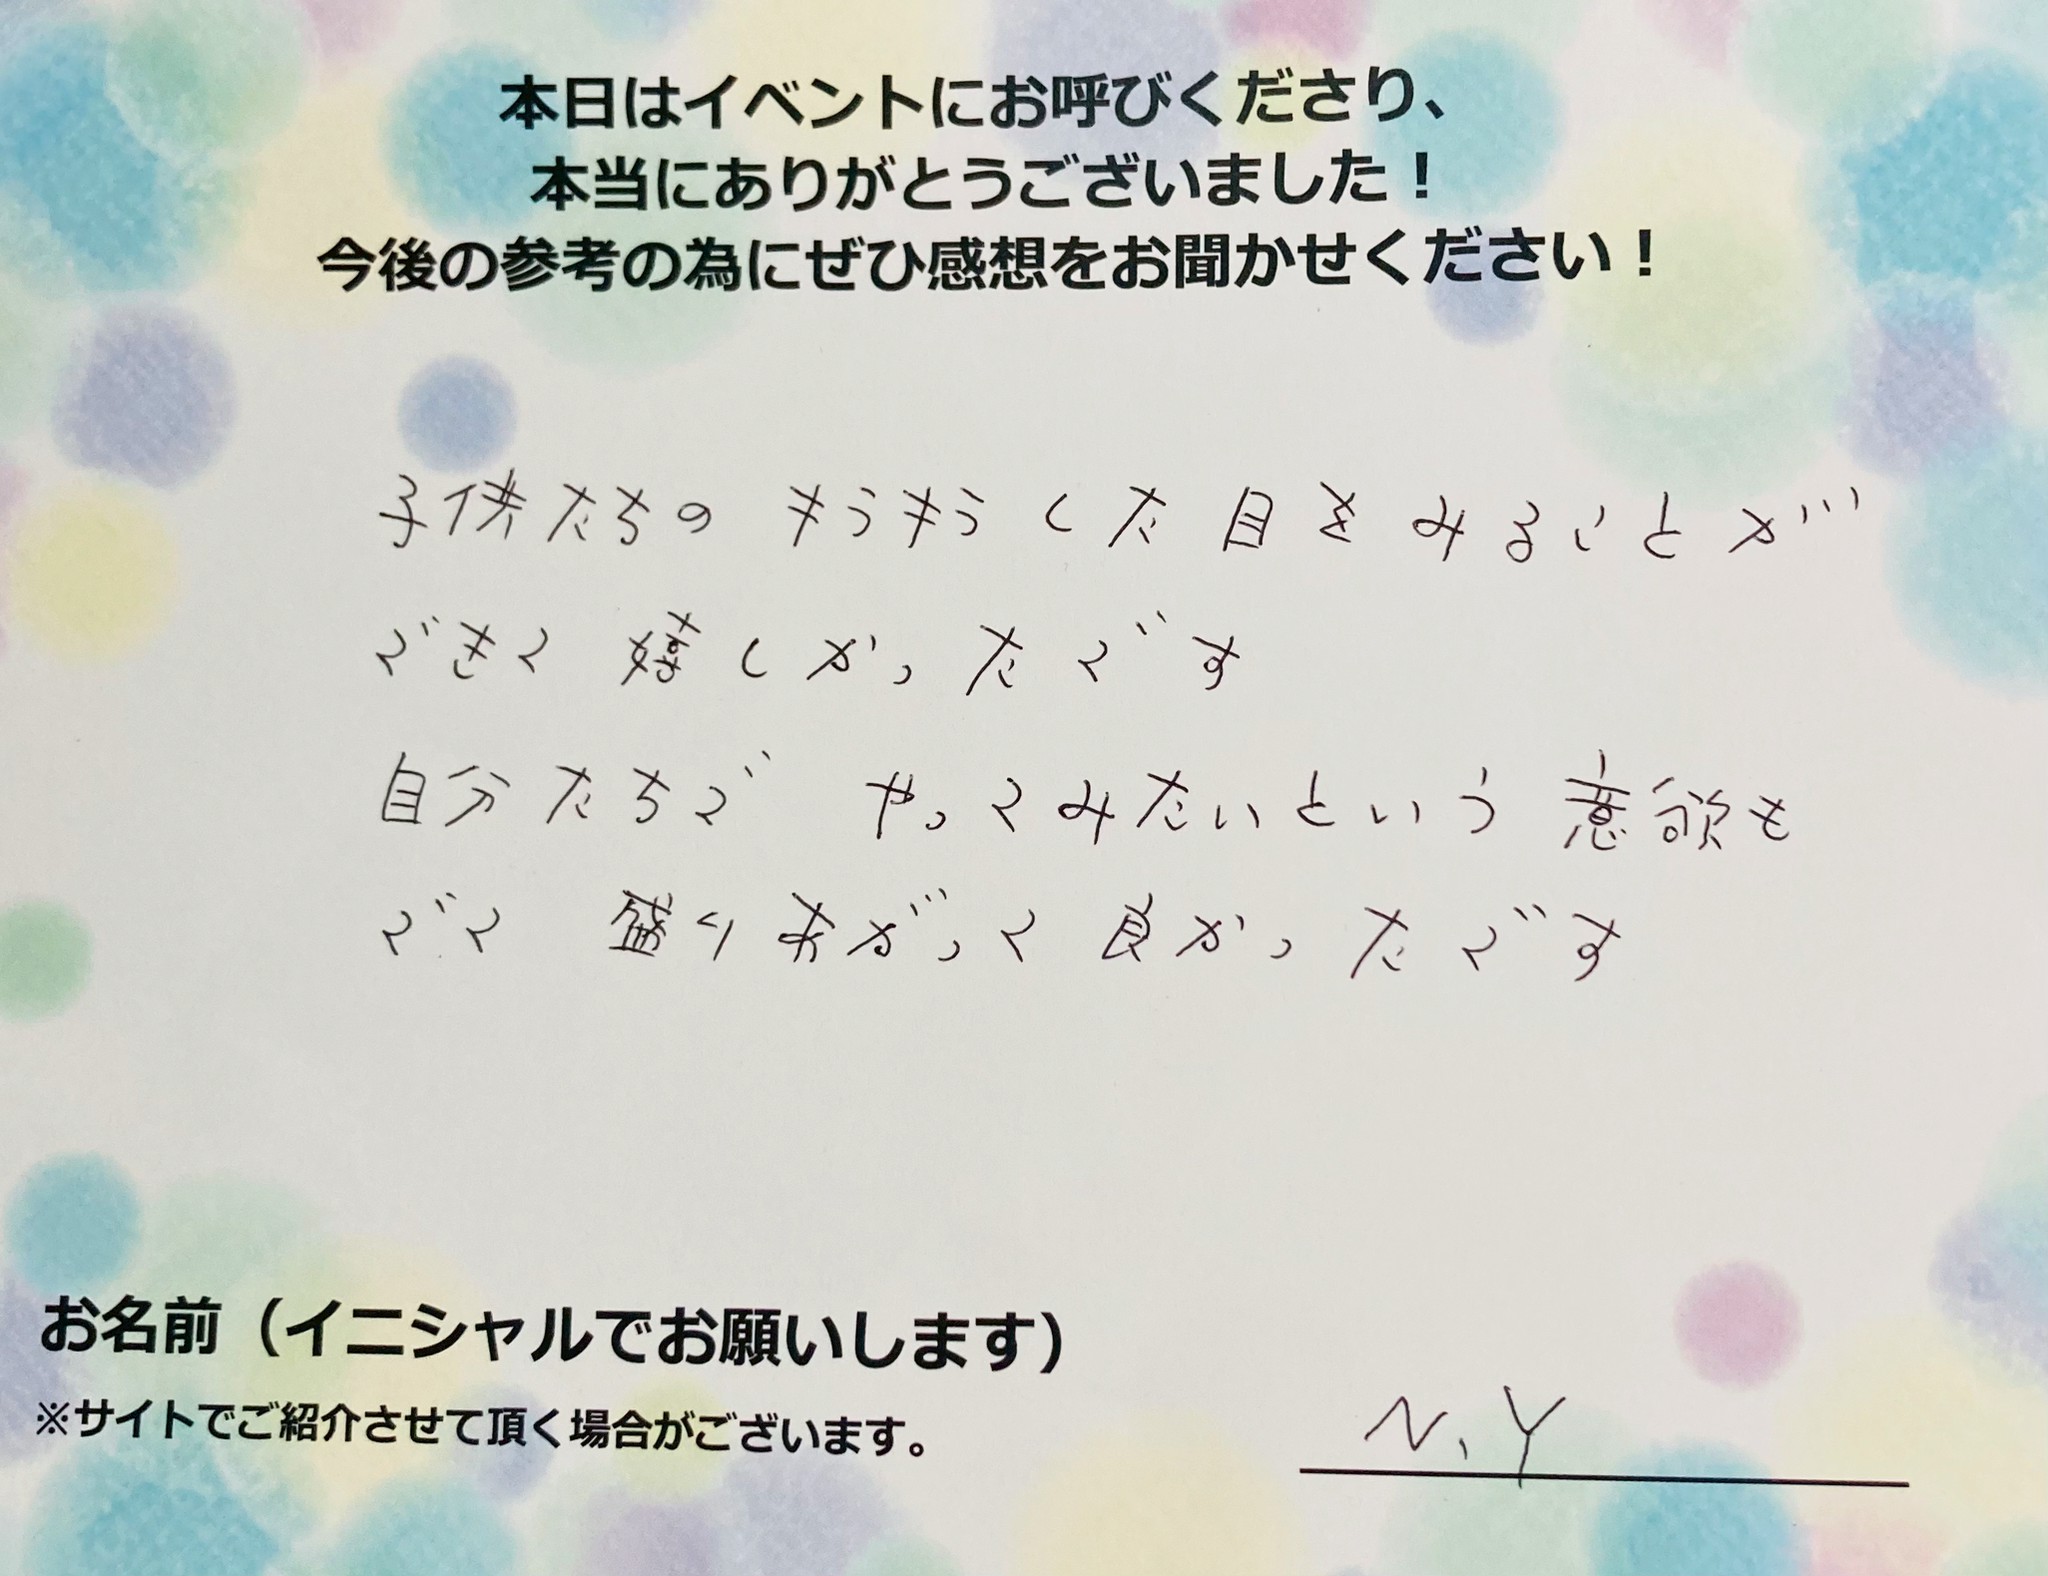 本日はイベントにお呼びくださり、
本当にありがとうございました！
今後の参考の為にぜひ感想をお聞かせください！
子供たちの キラキラした目をみることが
できて 嬉しかったです
自分たちで やってみたいという意欲も
でて 盛りあがって良かったです
お名前（イニシャルでお願いします）
※サイトでご紹介させて頂く場合がございます。
N、Y